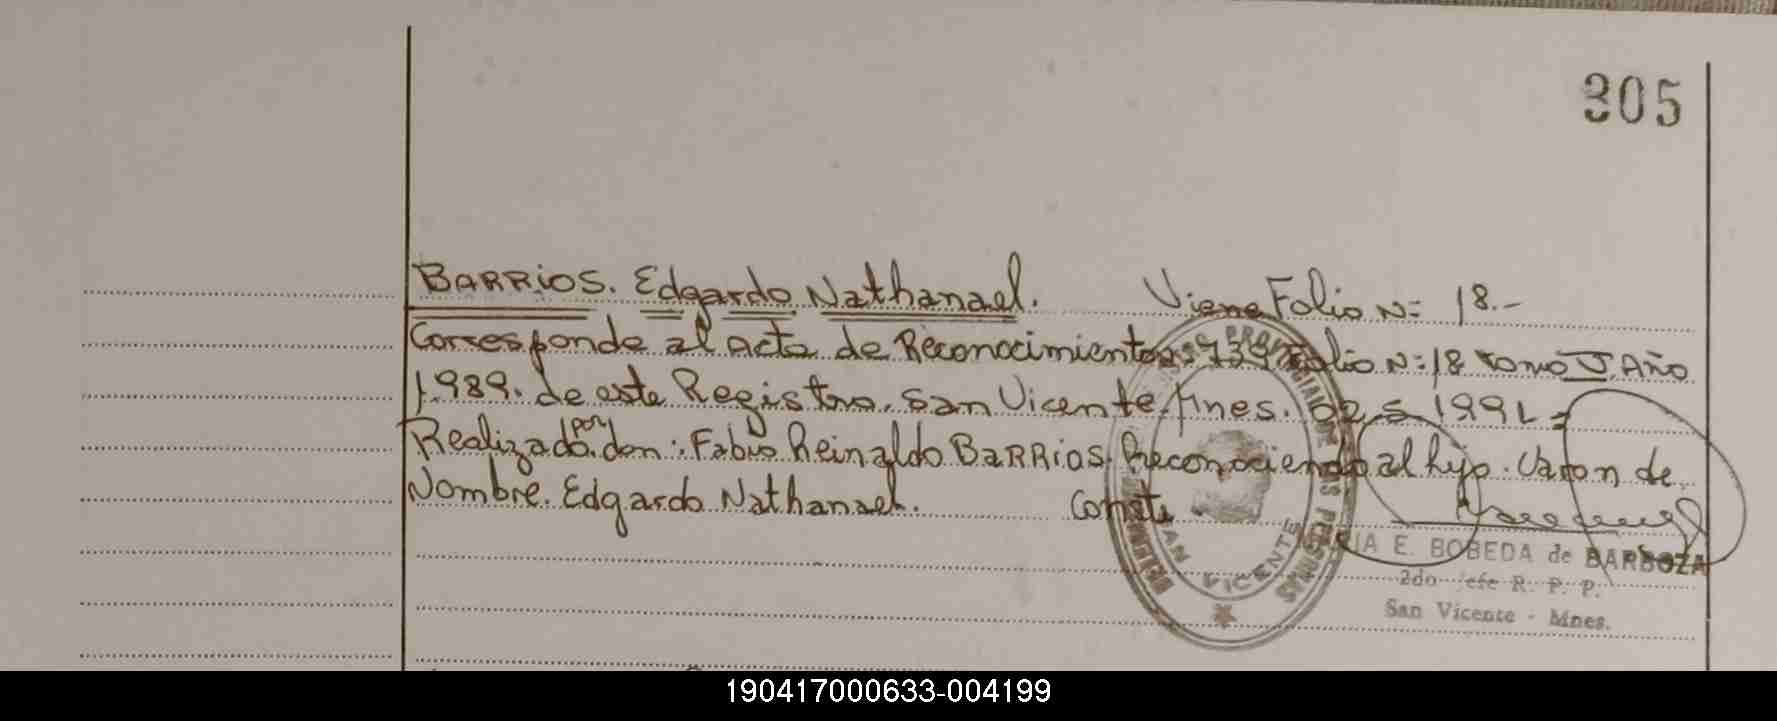 305
BARRIOS. Edgardo Nathanael. Viene Folio N= 18.-
Corresponde al acta de Reconocimiento 739 Folio N: 18 Tomo I Año
1.989. de este Registro. San Vicente. Mnes. 02 5 1991=
Realizado por don: Fabio Reinaldo BARRios. Reconociendo al hijo. Varon de
Nombre. Edgardo Nathanael. Conste
E. BOBEDA de BARBOZA
2do Jefe R. P. P.
San Vicente - Mnes.
PROVINCIAL DE LAS PERSONAS
SAN VICENTE
190417000633-004199